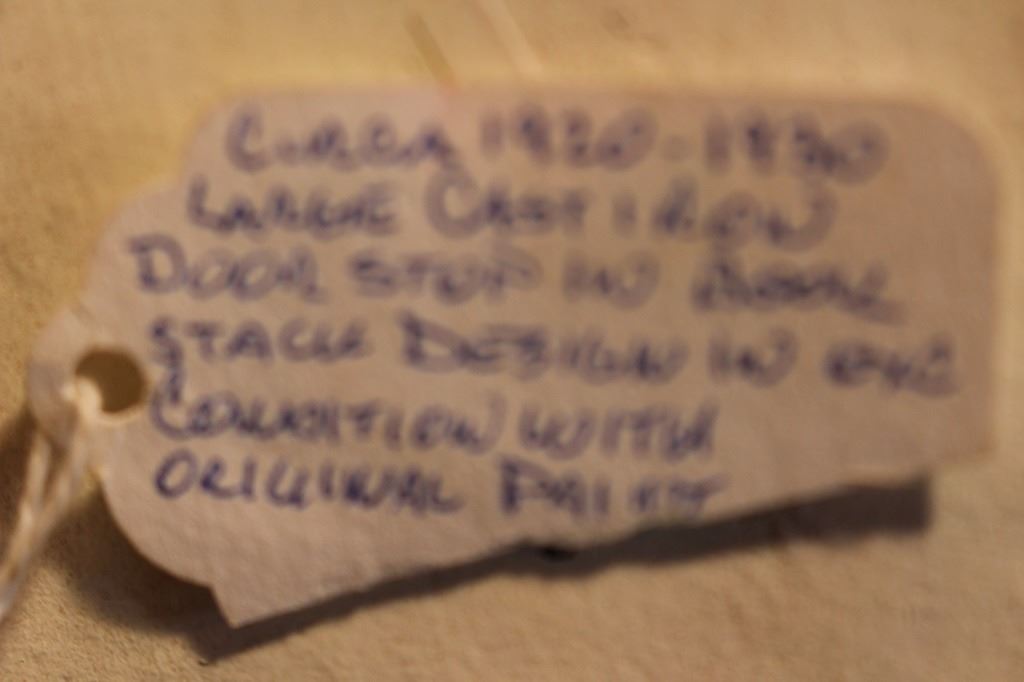 CIRCA 1920-1930
LARGE CAST IRON
DOOR STOP IN
STACK DESIGN IN EXC
CONDITION WITH
ORIGINAL PAINT